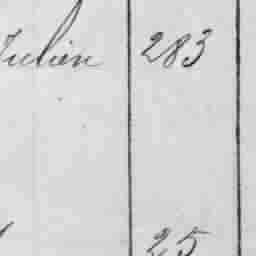 Julien 283
25